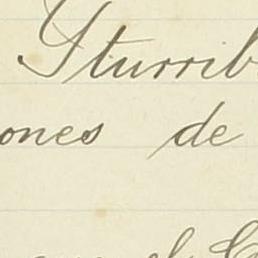 Yturrib
ones de